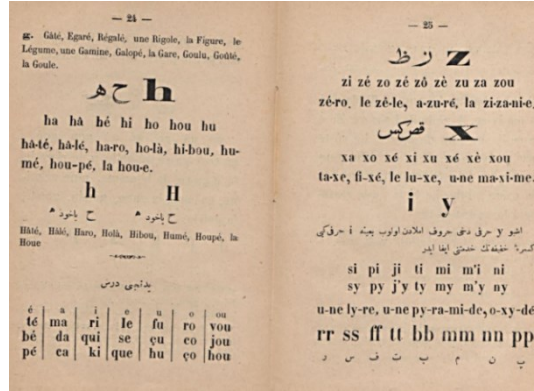 — 24 —
g. Gâté, Egaré, Régalé, une Rigole, la Figure, le
Légume, une Gamine, Galopé, la Gare, Goulu, Goûté,
la Goule.
ح ھ h
ha hâ hé hi ho hou hu
hâ-té, hâ-lé, ha-ro, ho-là, hi-bou, hu-
mé, hou-pé, la hou-e.
h H
ح یاخود ه ح یاخود ه
Hâté, Hâlé, Haro, Holà, Hibou, Humé, Houpé, la
Houe
یدنجی درس
é a i e u o ou
té ma ri le fu ro vou
bé da qui se çu co jou
pé ca ki que hu ço hou
— 25 —
ز ظ z
zi zé zo zé zô zè zu za zou
zé-ro, le zê-le, a-zu-ré, la zi-za-ni-e,
x
xa xo xé xi xu xé xè xou
ta-xe, fi-xé, le lu-xe, u-ne ma-xi-me.
i y
اشبو y حرفی دخی حروف املادن اولوب بعینه i حرفی کبی
si pi ji ti mi m'i ni
sy py j'y ty my m'y ny
u-ne ly-re, u-ne py-ra-mi-de, o-xy-dé
rr ss ff tt bb mm nn pp
ر س ف ت ب م ن پ